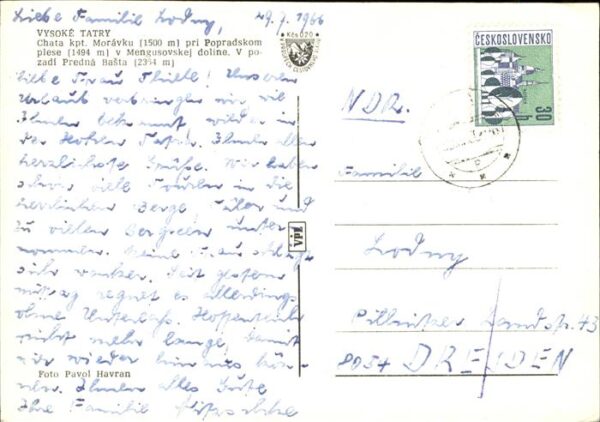 Liebe Familie Lodny, 29.7.1966
VYSOKÉ TATRY
Chata kpt. Morávku [1500 m] pri Popradskom
plese [1494 m] v Mengusovskej doline. V po-
zadí Predná Bašta [2364 m]
Kčs 0,20
ČESKOSLOVENSKO
30 h
Liebe Frau Thiele! Unseren
Urlaub verbringen wir wie
Ihnen bekannt wieder in
der Hohen Tatra. Ihnen allen
herzlichste Grüße. Wir haben
schon viele Touren in die
herrlichen Berge, Täler und
zu vielen Bergseen unter-
nommen. Meine Frau
sehr wacker. Seit gestern
mittag regnet es allerdings
ohne Unterlaß. Hoffentlich
nicht mehr lange, damit
wir wieder hinaus kön-
nen. Ihnen alles Gute
Ihre Familie
Foto Pavol Havran
VPL
NDR.
Familie
Lodny
Pillnitzer Landstr. 43
8057 DRESDEN